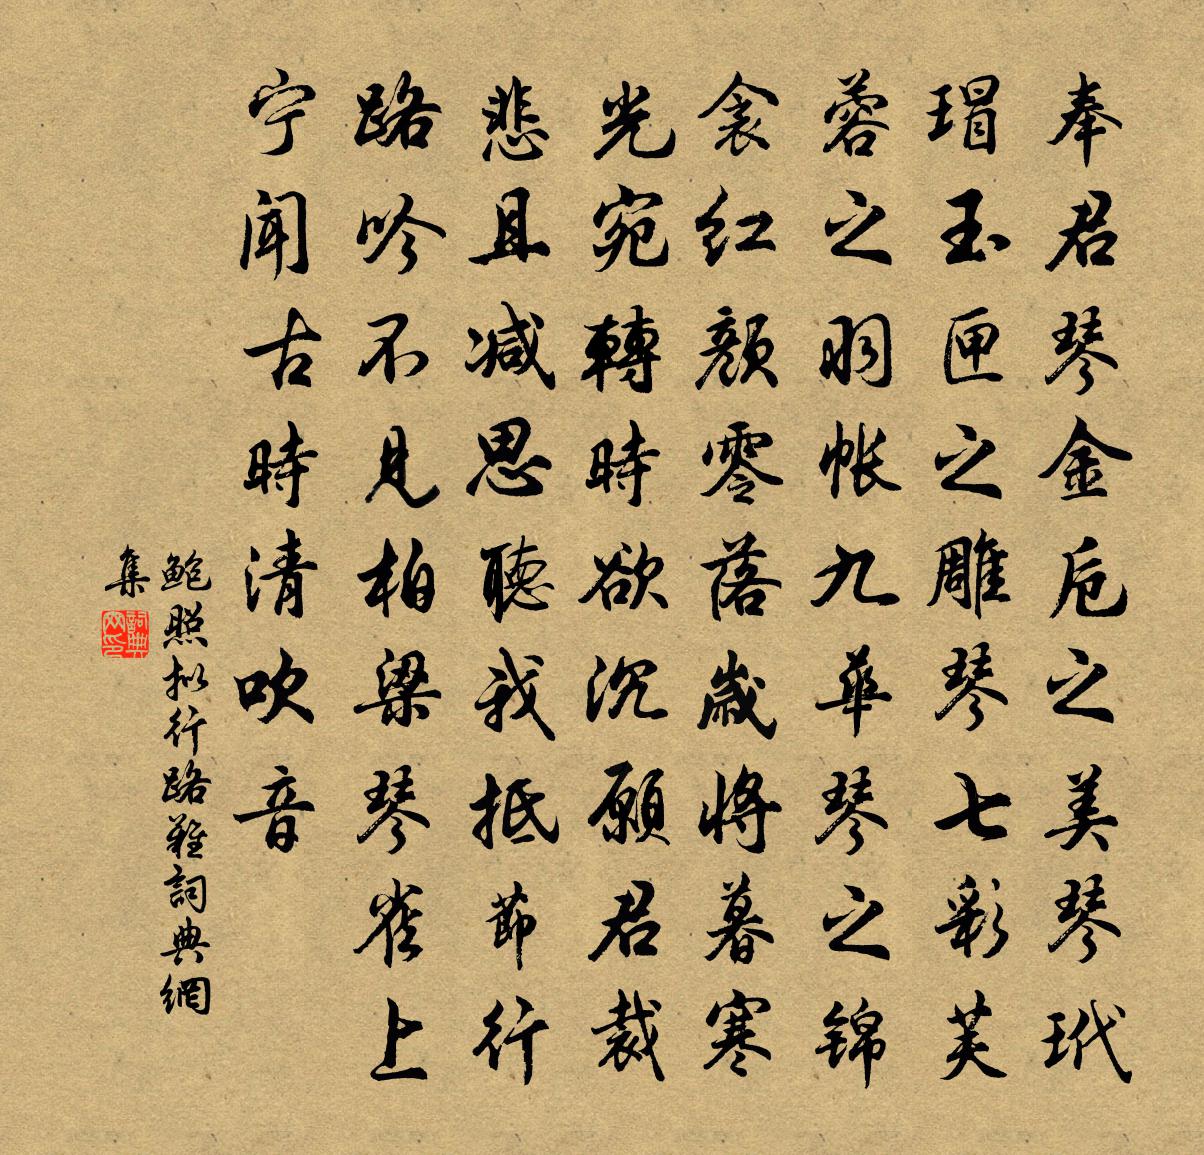 奉君琴金卮之美琴玳
瑁玉匣之雕琴七彩芙
蓉之羽帳九華琴之锦
衾红颜零落歲將暮寒
光宛轉時欲沉願君裁
悲且减思聽我抵節行
路吟不見柏梁琴雀上
宁闻古時清吹音
鲍照拟行路難詞典網
集
詞典
网印